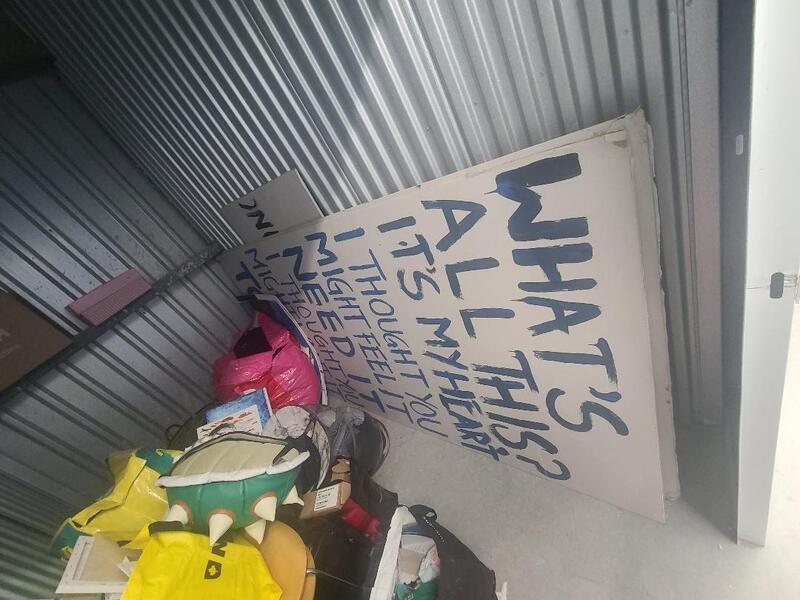 WHAT'S
ALL THIS?
IT'S MY HEART
I THOUGHT YOU
MIGHT FEEL IT
NEED IT
I THOUGHT YOU
MIGHT